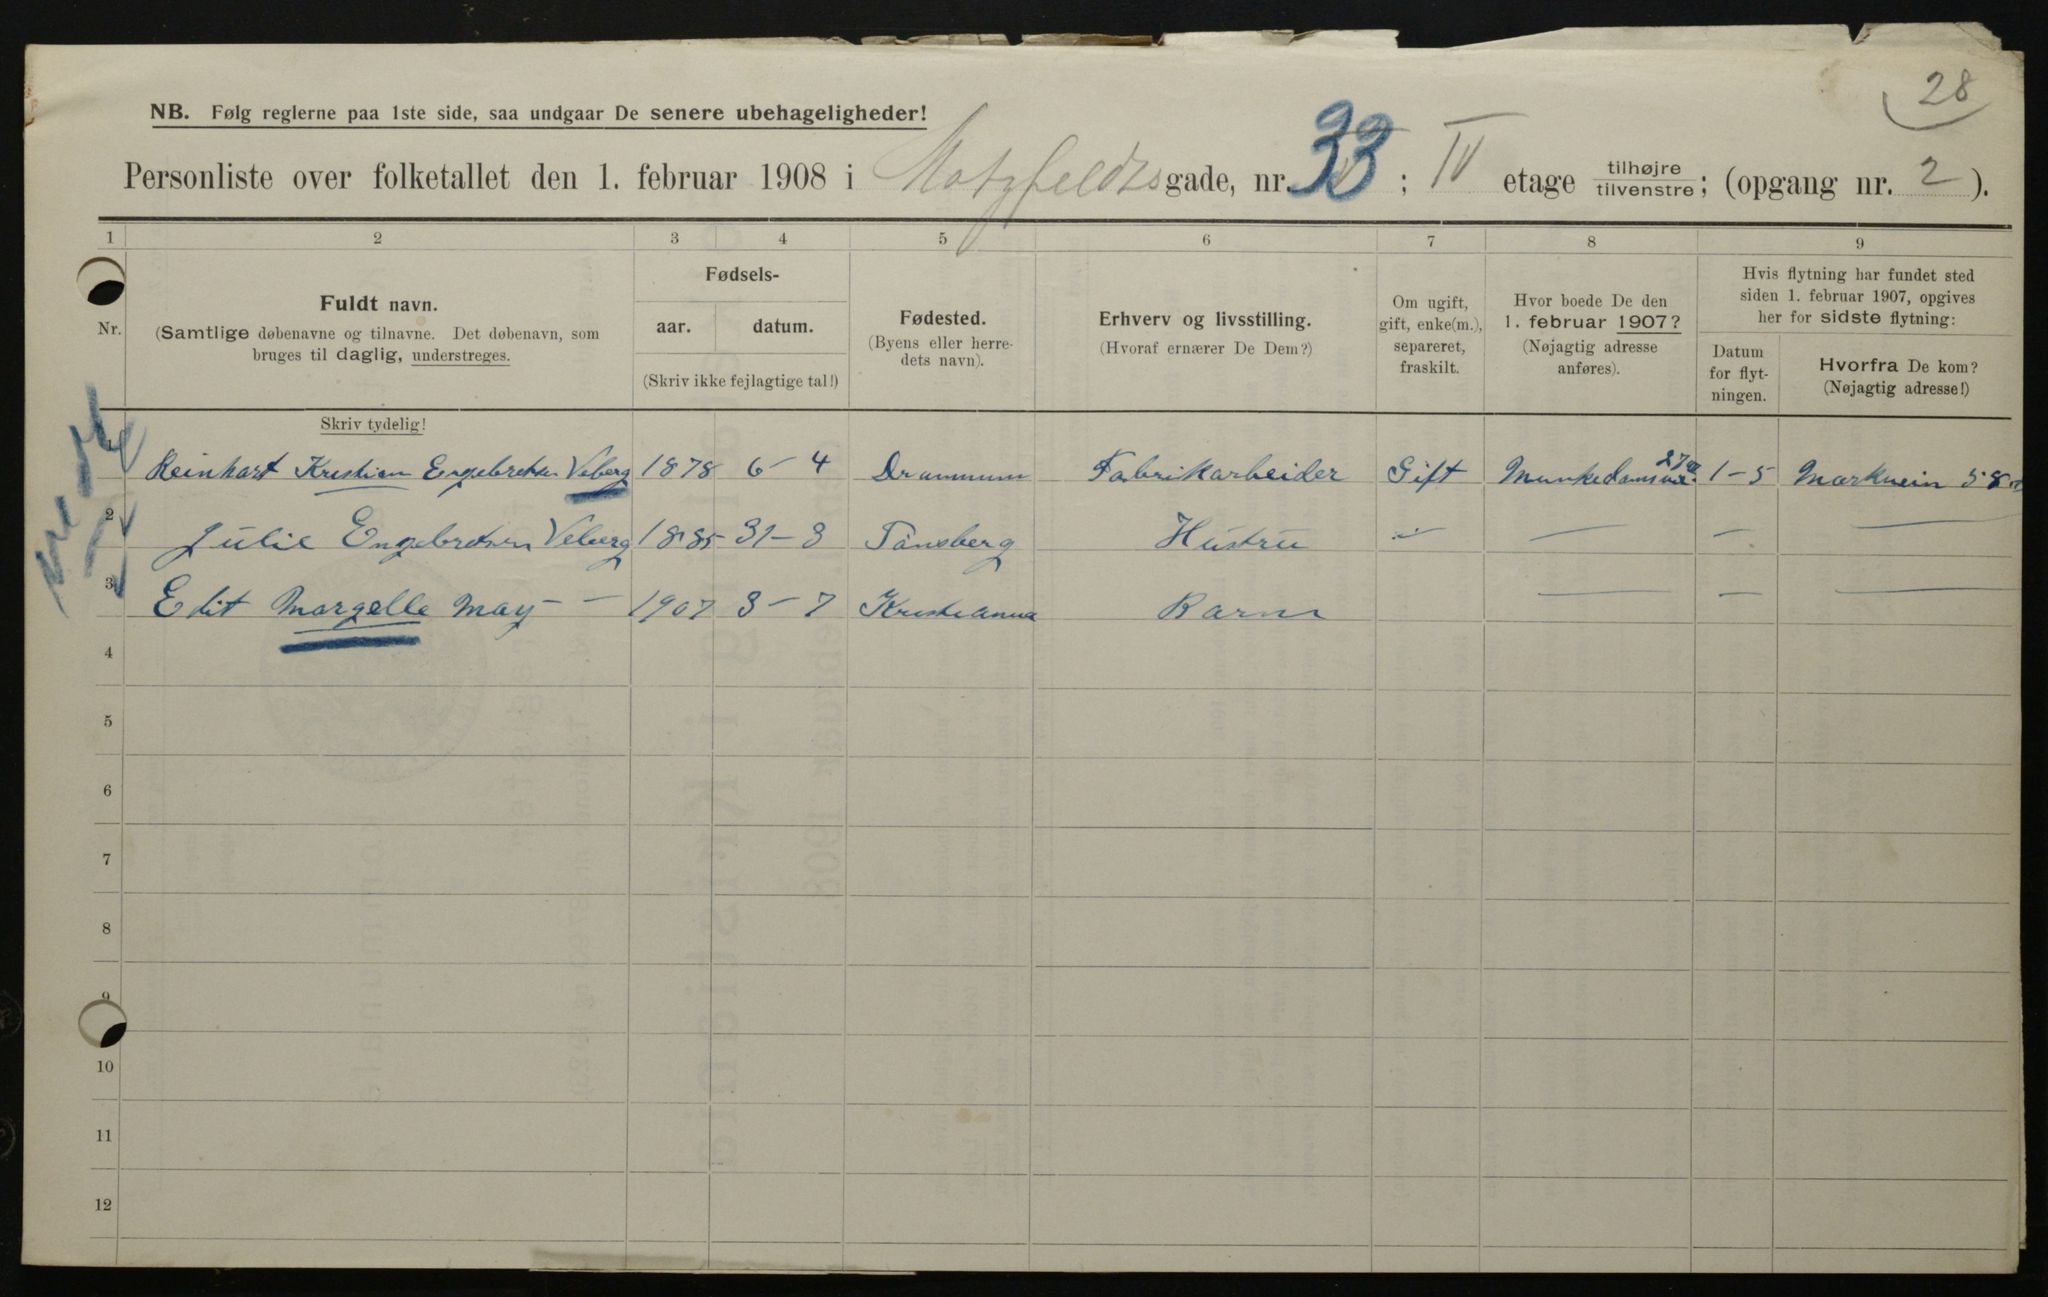 28
NB. Følg reglerne paa 1ste side, saa undgaar De senere ubehageligheder!
Personliste over folketallet den 1. februar 1908 i Motzfeldtsgade, nr. 33; IV etage tilhøjre tilvenstre; (opgang nr. 2).
1 2 3 4 5 6 7 8 9
Nr.
Fuldt navn.
(Samtlige døbenavne og tilnavne. Det døbenavn, som
bruges til daglig, understreges.
Fødsels-
aar. datum.
(Skriv ikke fejlagtige tal!)
Fødested.
(Byens eller herre-
dets navn).
Erhverv og livsstilling.
(Hvoraf ernærer De Dem?)
Om ugift,
gift, enke(m.),
separeret,
fraskilt.
Hvor boede De den
1. februar 1907?
(Nøjagtig adresse
anføres).
Hvis flytning har fundet sted
siden 1. februar 1907, opgives
her for sidste flytning:
Datum
for flyt-
ningen.
Hvorfra De kom?
(Nøjagtig adresse!)
Skriv tydelig!
1 Reinhart Kristian Engebretsen Veberg 1878 6-4 Drammen Fabrikarbeider Gift Munkedamsvei 27 1-5 Markvein 58
2 Julie Engebretsen Veberg 1885 31-3 Tønsberg Hustru - - - -
3 Edit Margelle May - - 1907 3-7 Kristiania Barn - - -
4
5
6
7
8
9
10
11
12